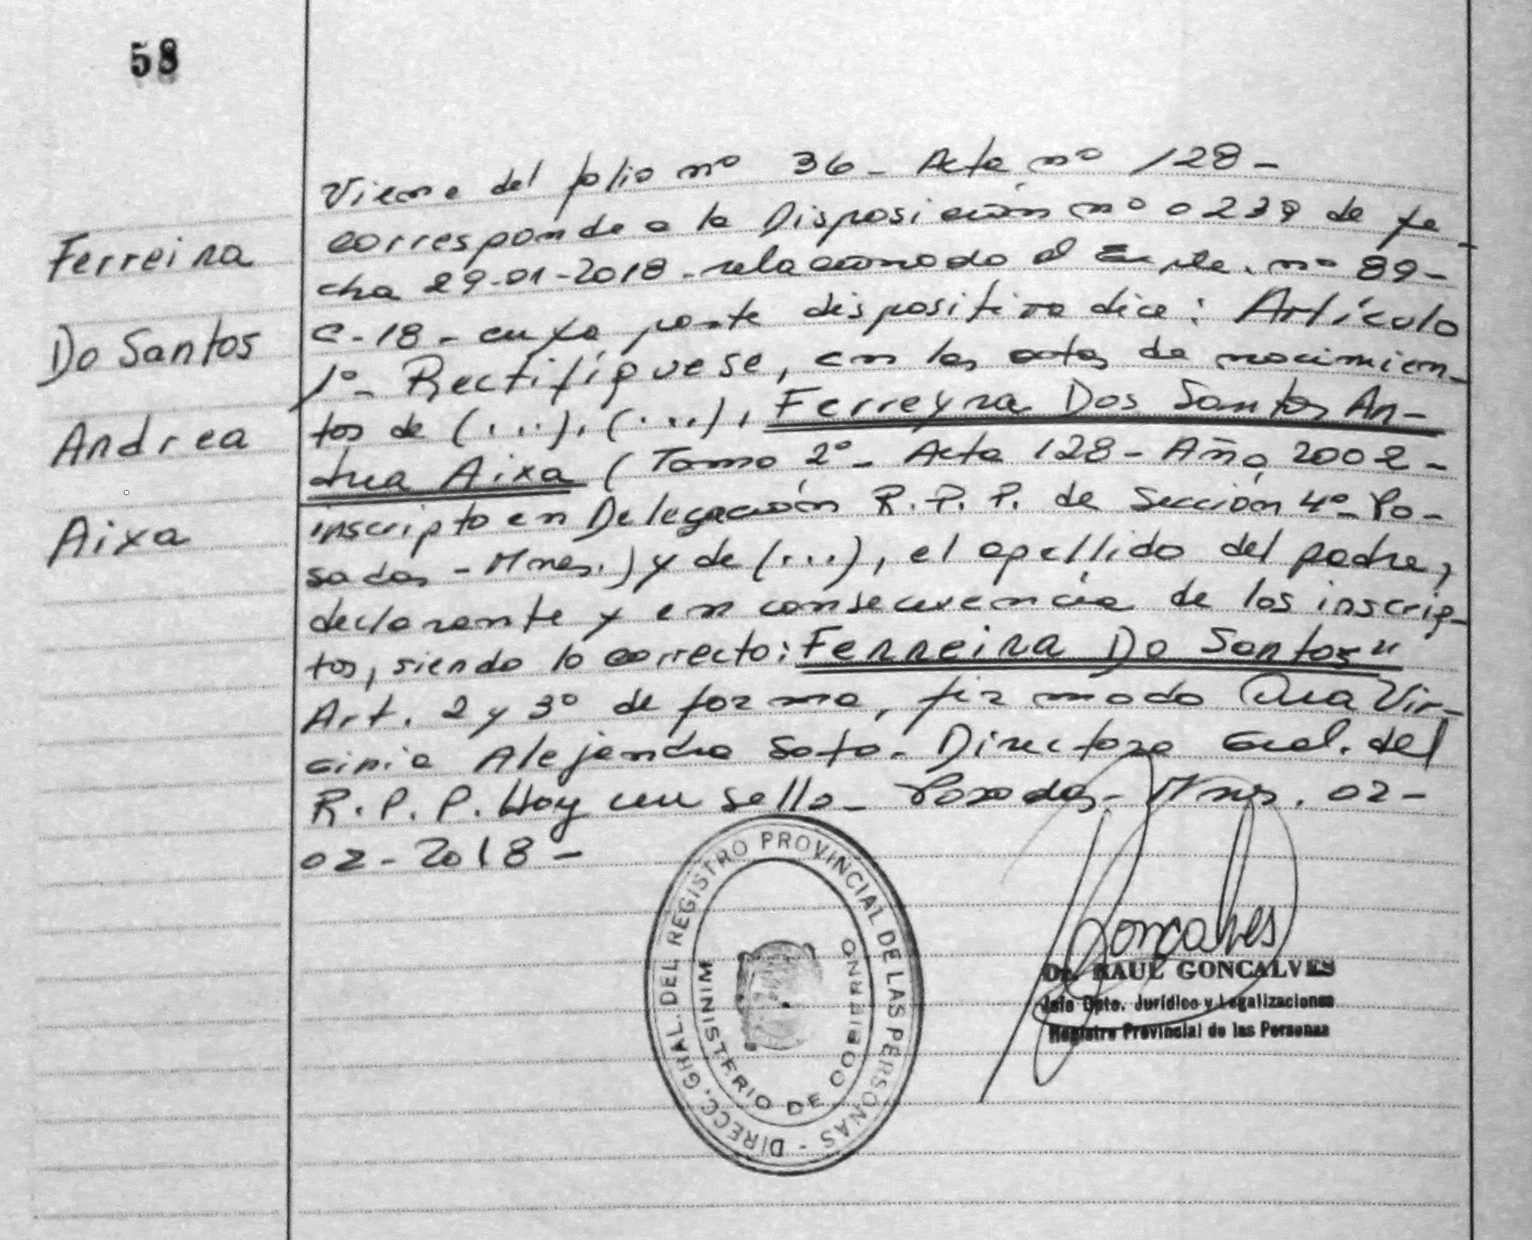 58
Ferreira
Do Santos
Andrea
Aixa
Viene del folio nº 36 - Acta nº 128 -
corresponde a la Disposición nº 0239 de fe-
cha 29-01-2018 - relacionado al Expte. nº 89-
C-18 - cuya parte dispositiva dice: Artículo
1º- Rectifíquese, en las actas de nacimien-
tos de (...), (...), Ferreyra Dos Santos An-
drea Aixa (Tomo 2º- Acta 128 - Año 2002 -
inscripto en Delegación R.P.P. de Sección 4º- Po-
sadas - Mnes.) y de (...), el apellido del padre,
declarante y en consecuencia de los inscrip-
tos, siendo lo correcto: Ferreira Do Santos"
Art. 2 y 3º de forma, firmado Dra Vir-
ginia Alejandra Soto - Directora Gral. del
R.P.P. Hay un sello - Posadas - Mnes. 02-
02-2018 -
DIRECC. GRAL. DEL REGISTRO PROVINCIAL DE LAS PERSONAS -
MINISTERIO DE GOBIERNO
Goncalves
Dr. RAUL GONCALVES
Jefe Dpto. Jurídico y Legalizaciones
Registro Provincial de las Personas